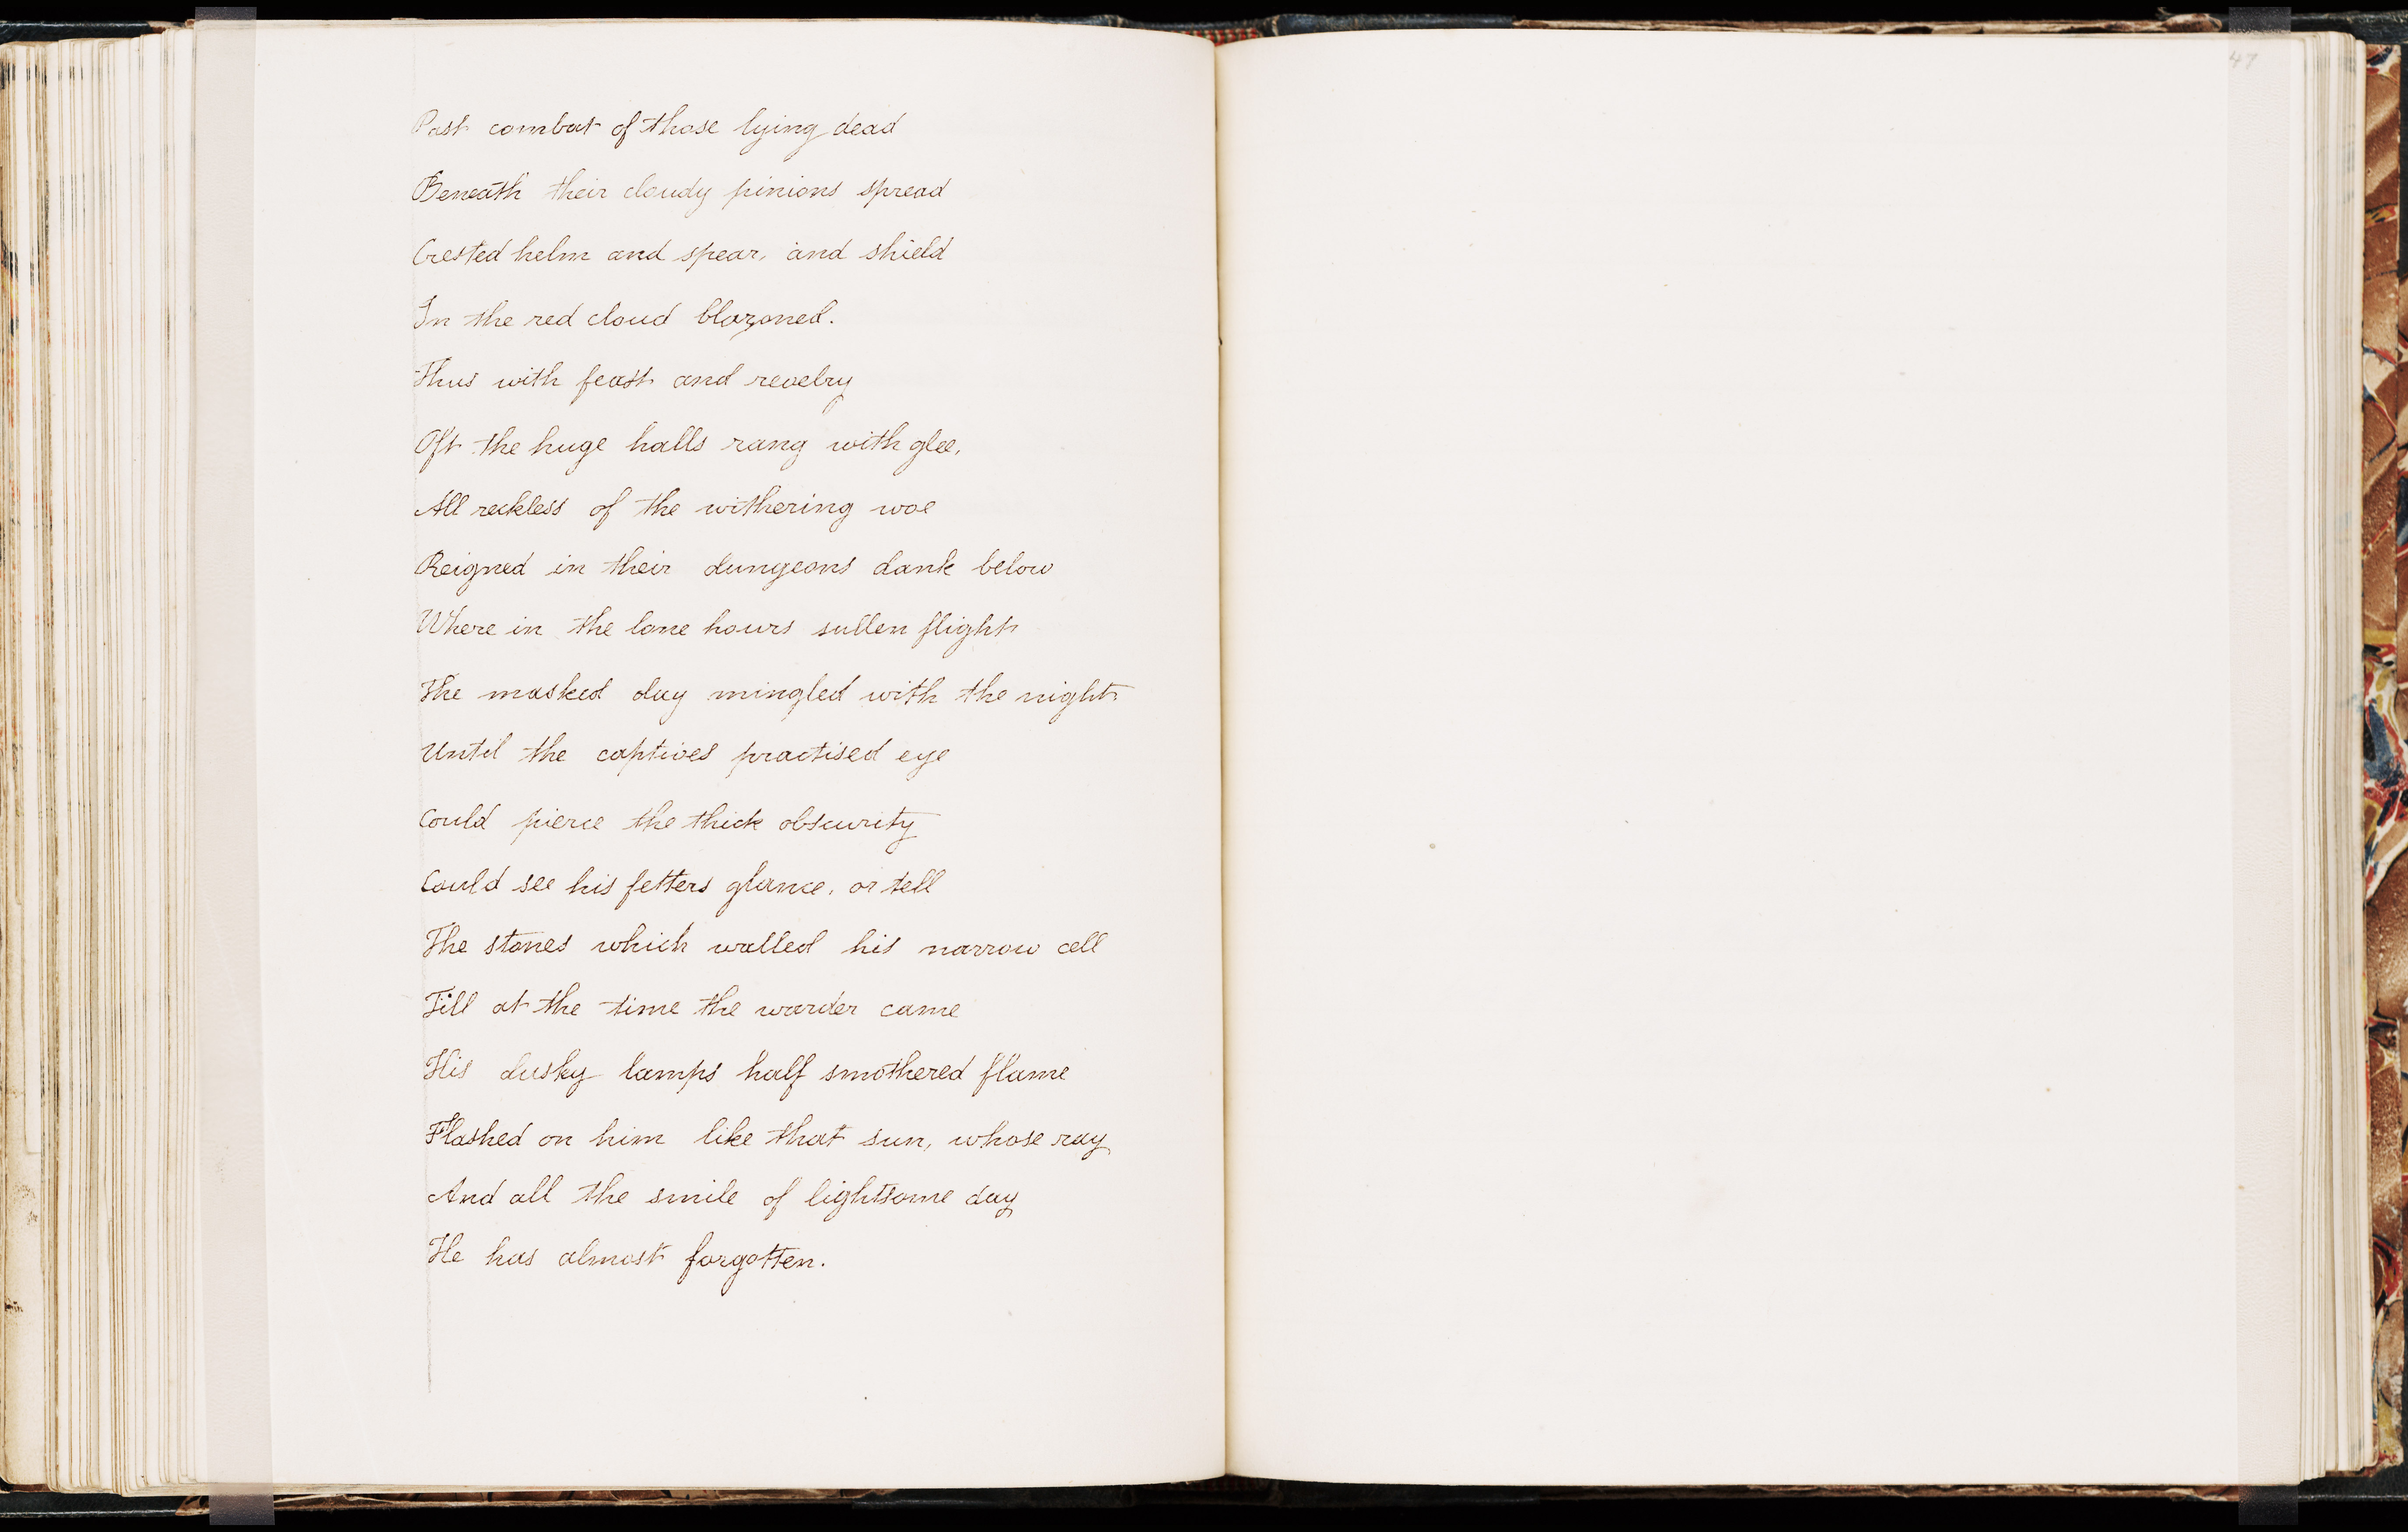 Past combat of those lying dead
Beneath their cloudy pinions spread
Crested helm and spear, and shield
In the red cloud blazoned.
Thus with feast and revelry
Oft the huge halls rang with glee,
All reckless of the withering woe
Reigned in their dungeons dank below
Where in the lone hours sullen flight
The masked day mingled with the night
Until the captives practised eye
Could pierce the thick obscurity
Could see his fetters glance, or tell
The stones which walled his narrow cell
Till at the time the warder came
His dusky lamps half smothered flame
Flashed on him like that sun, whose ray
And all the smile of lightsome day
He has almost forgotten.
47